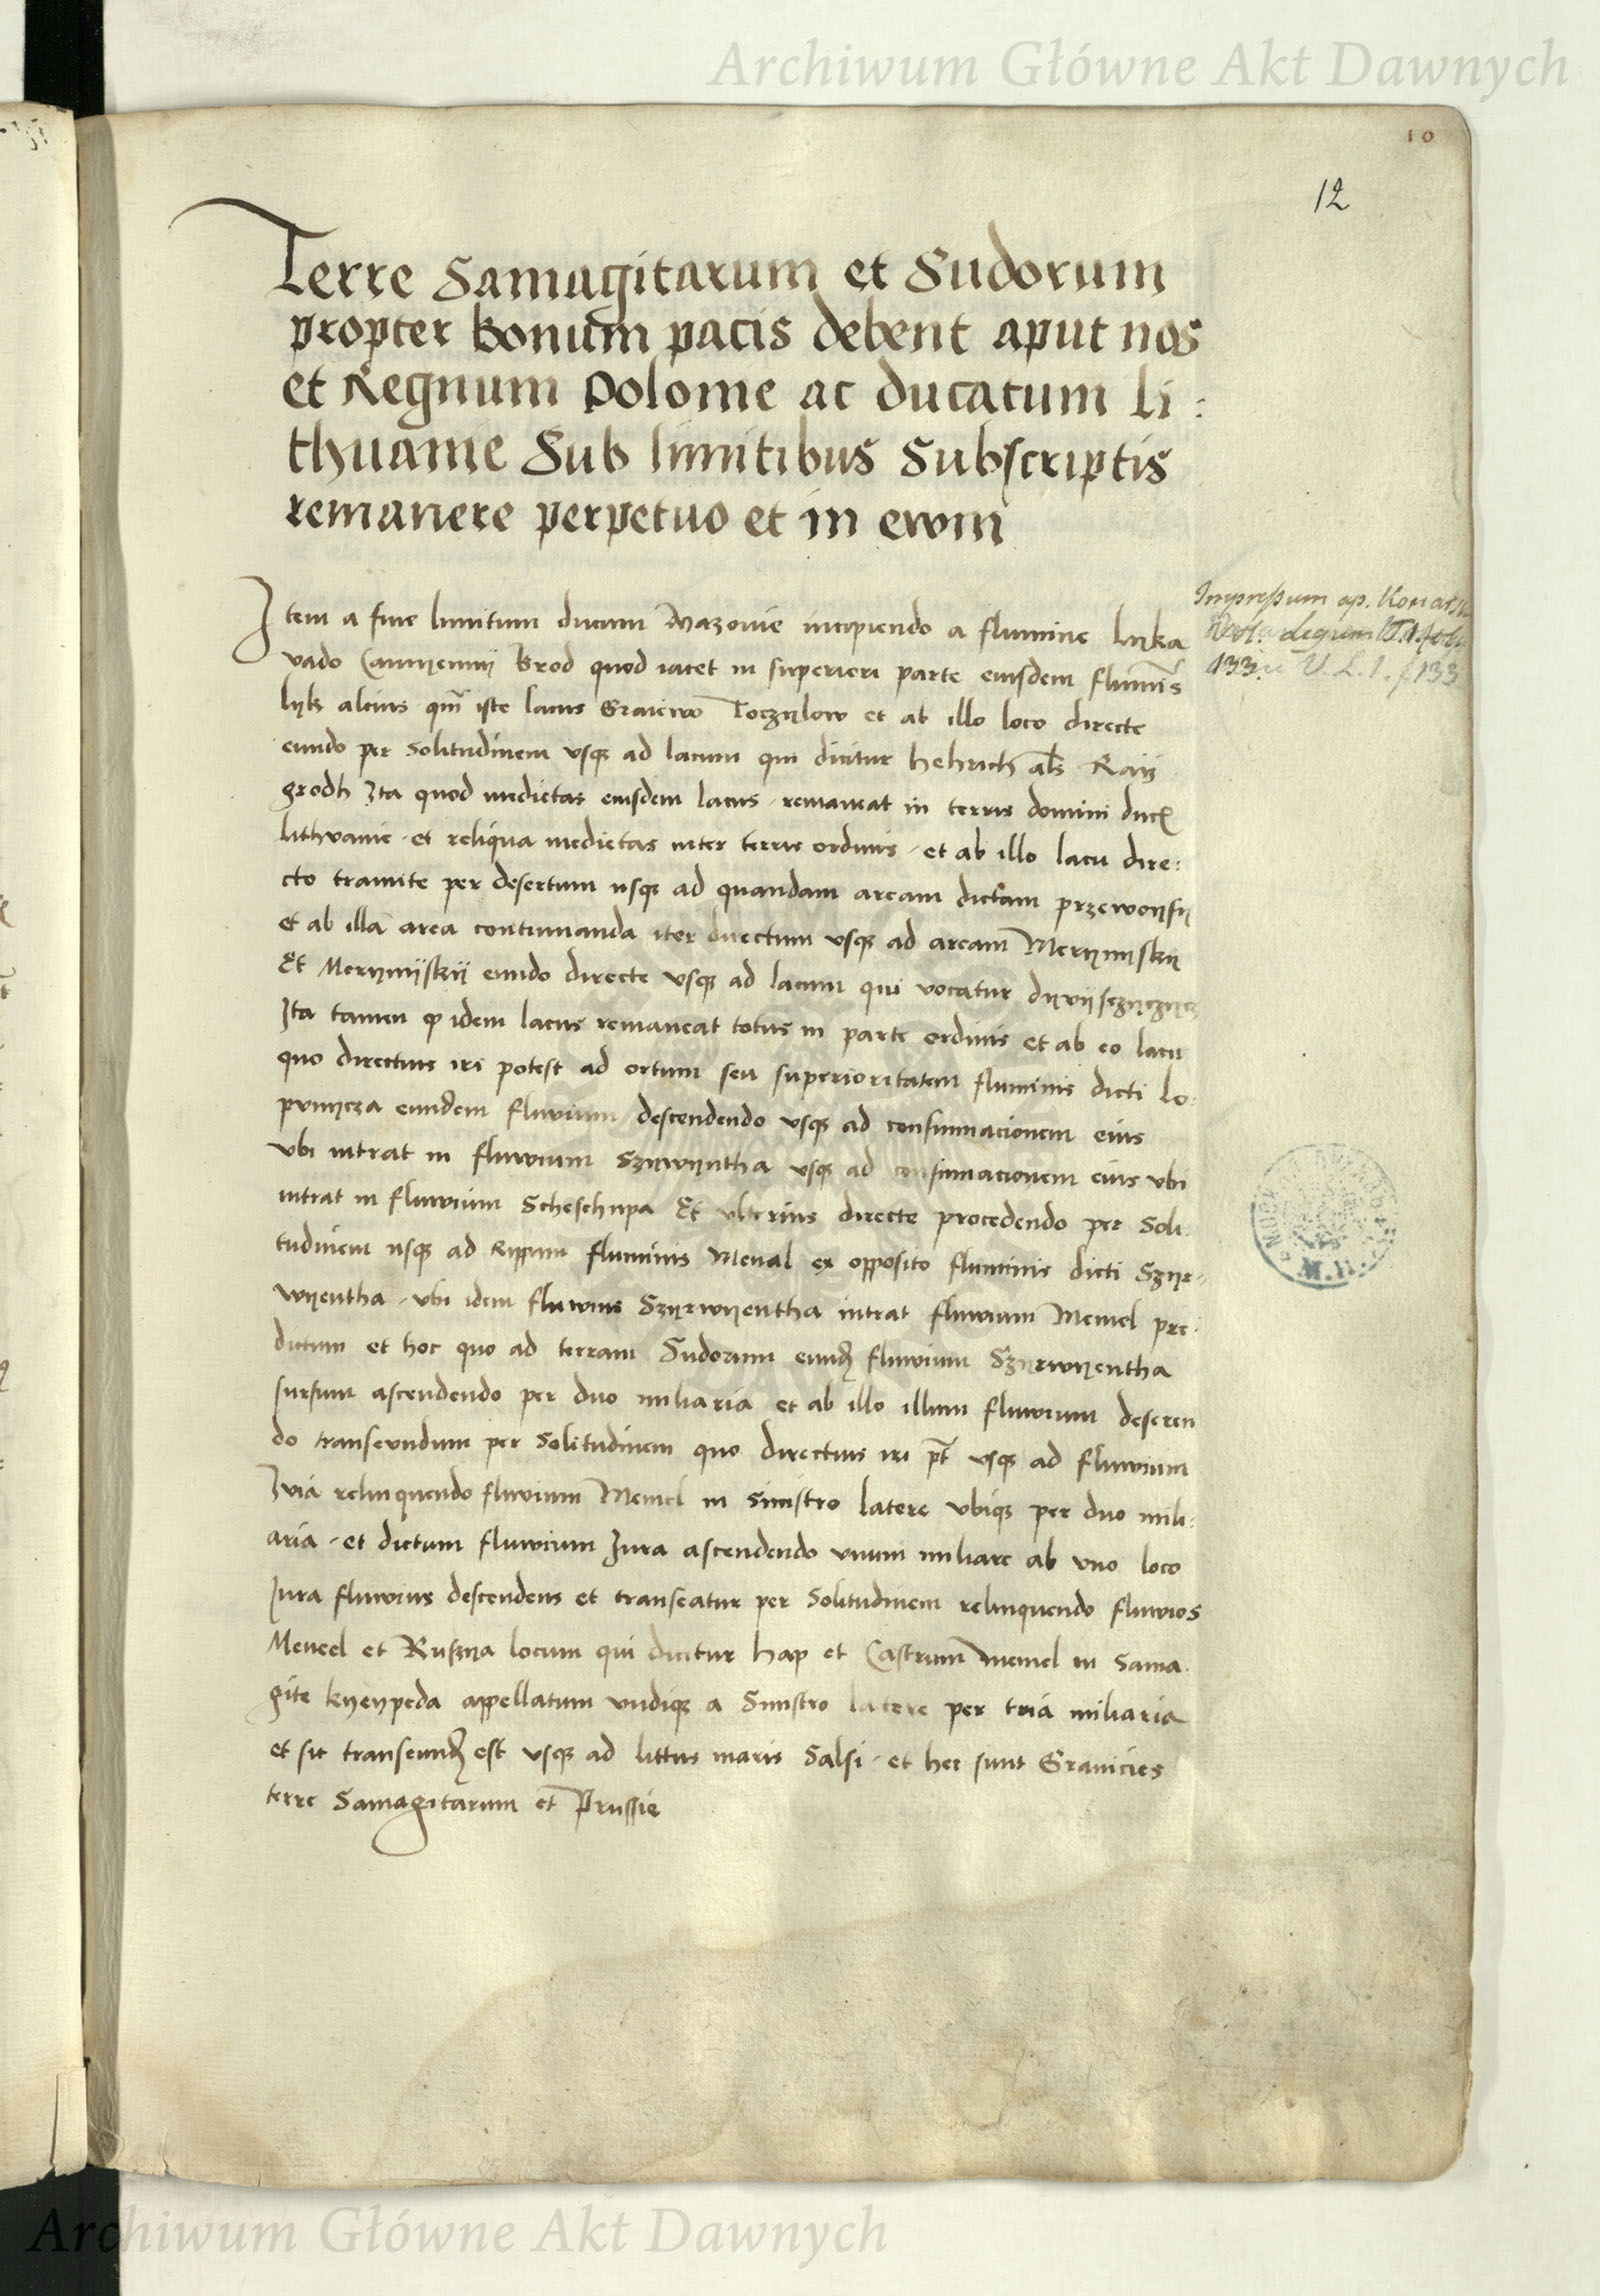 Archiwum Główne Akt Dawnych
10
12
Terre Samagitarum et Sudorum
propter bonum pacis debent aput nos
et Regnum Polonie ac ducatum li:
thuanie Sub limitibus Subscriptis
remanere perpetuo et in ewm
Item a fine limitum ducum Mazovie incipiendo a flumine Lyka
vado Camyennij Brod quod iacet in superiori parte eiusdem fluminis
lyk alcius qm iste lacus Graiewo Toczylow et ab illo loco directe
eundo per solitudinem vsq ad lacum qui dicitur hehrich als Raij
grodh Ita quod medietas eiusdem lacus remaneat in terris domini duc
lithvanie et reliqua medietas inter terris ordinis et ab illo lacu dire:
cto tramite per desertum usq ad quandam aream dictam przewoysy
et ab illa area continuanda iter directum vsq ad aream Merijmisky
Et Merymijskij eundo directe vsq ad lacum qui vocatur
Ita tamen q idem lacus remaneat totus in parte ordinis et ab eo lacu
quo directius iri potest ad ortum seu superioritatem fluminis dicti lo.
pvnycza eundem fluvium descendendo vsq ad consumacionem eius
vbi intrat in fluwium Szywyntha vsq ad consumacionem eius vbi
intrat in fluwium Scheschupa Et vlterius directe procedendo per Soli
tudinem usq ad Rippam fluminis Memal ex opposito fluminis dicti Szyr-
wyentha vbi idem fluwius Szyrwyentha intrat fluwium Memel pre.
dictum et hoc quo ad terram Sudorum eund fluwium Szyrwyentha
sursum ascendendo per duo miliaria et ab illo illum fluwium deseren
do transeundum per Solitudinem quo directius iri pt vsq ad fluwium
Ivia relinquendo fluvium Memel in sinistro latere vbiq per duo mili:
aria et dictum fluwium Jura ascendendo vnum miliare ab vno loco
Iura fluwius descendens et transeatur per Solitudinem relinquendo fluwios
Memel et Rusna locum qui dicitur hap et Castrum memel in Sama.
gite kyeypeda appellatum vndiq a Sinistro latere per tria miliaria
et sic transeund est vsq ad littus maris Salsi et hec sunt Granicies
terre Samagitarum et Prussie
Impressum ap.
133 V. L. I. f 133
Archiwum Główne Akt Dawnych